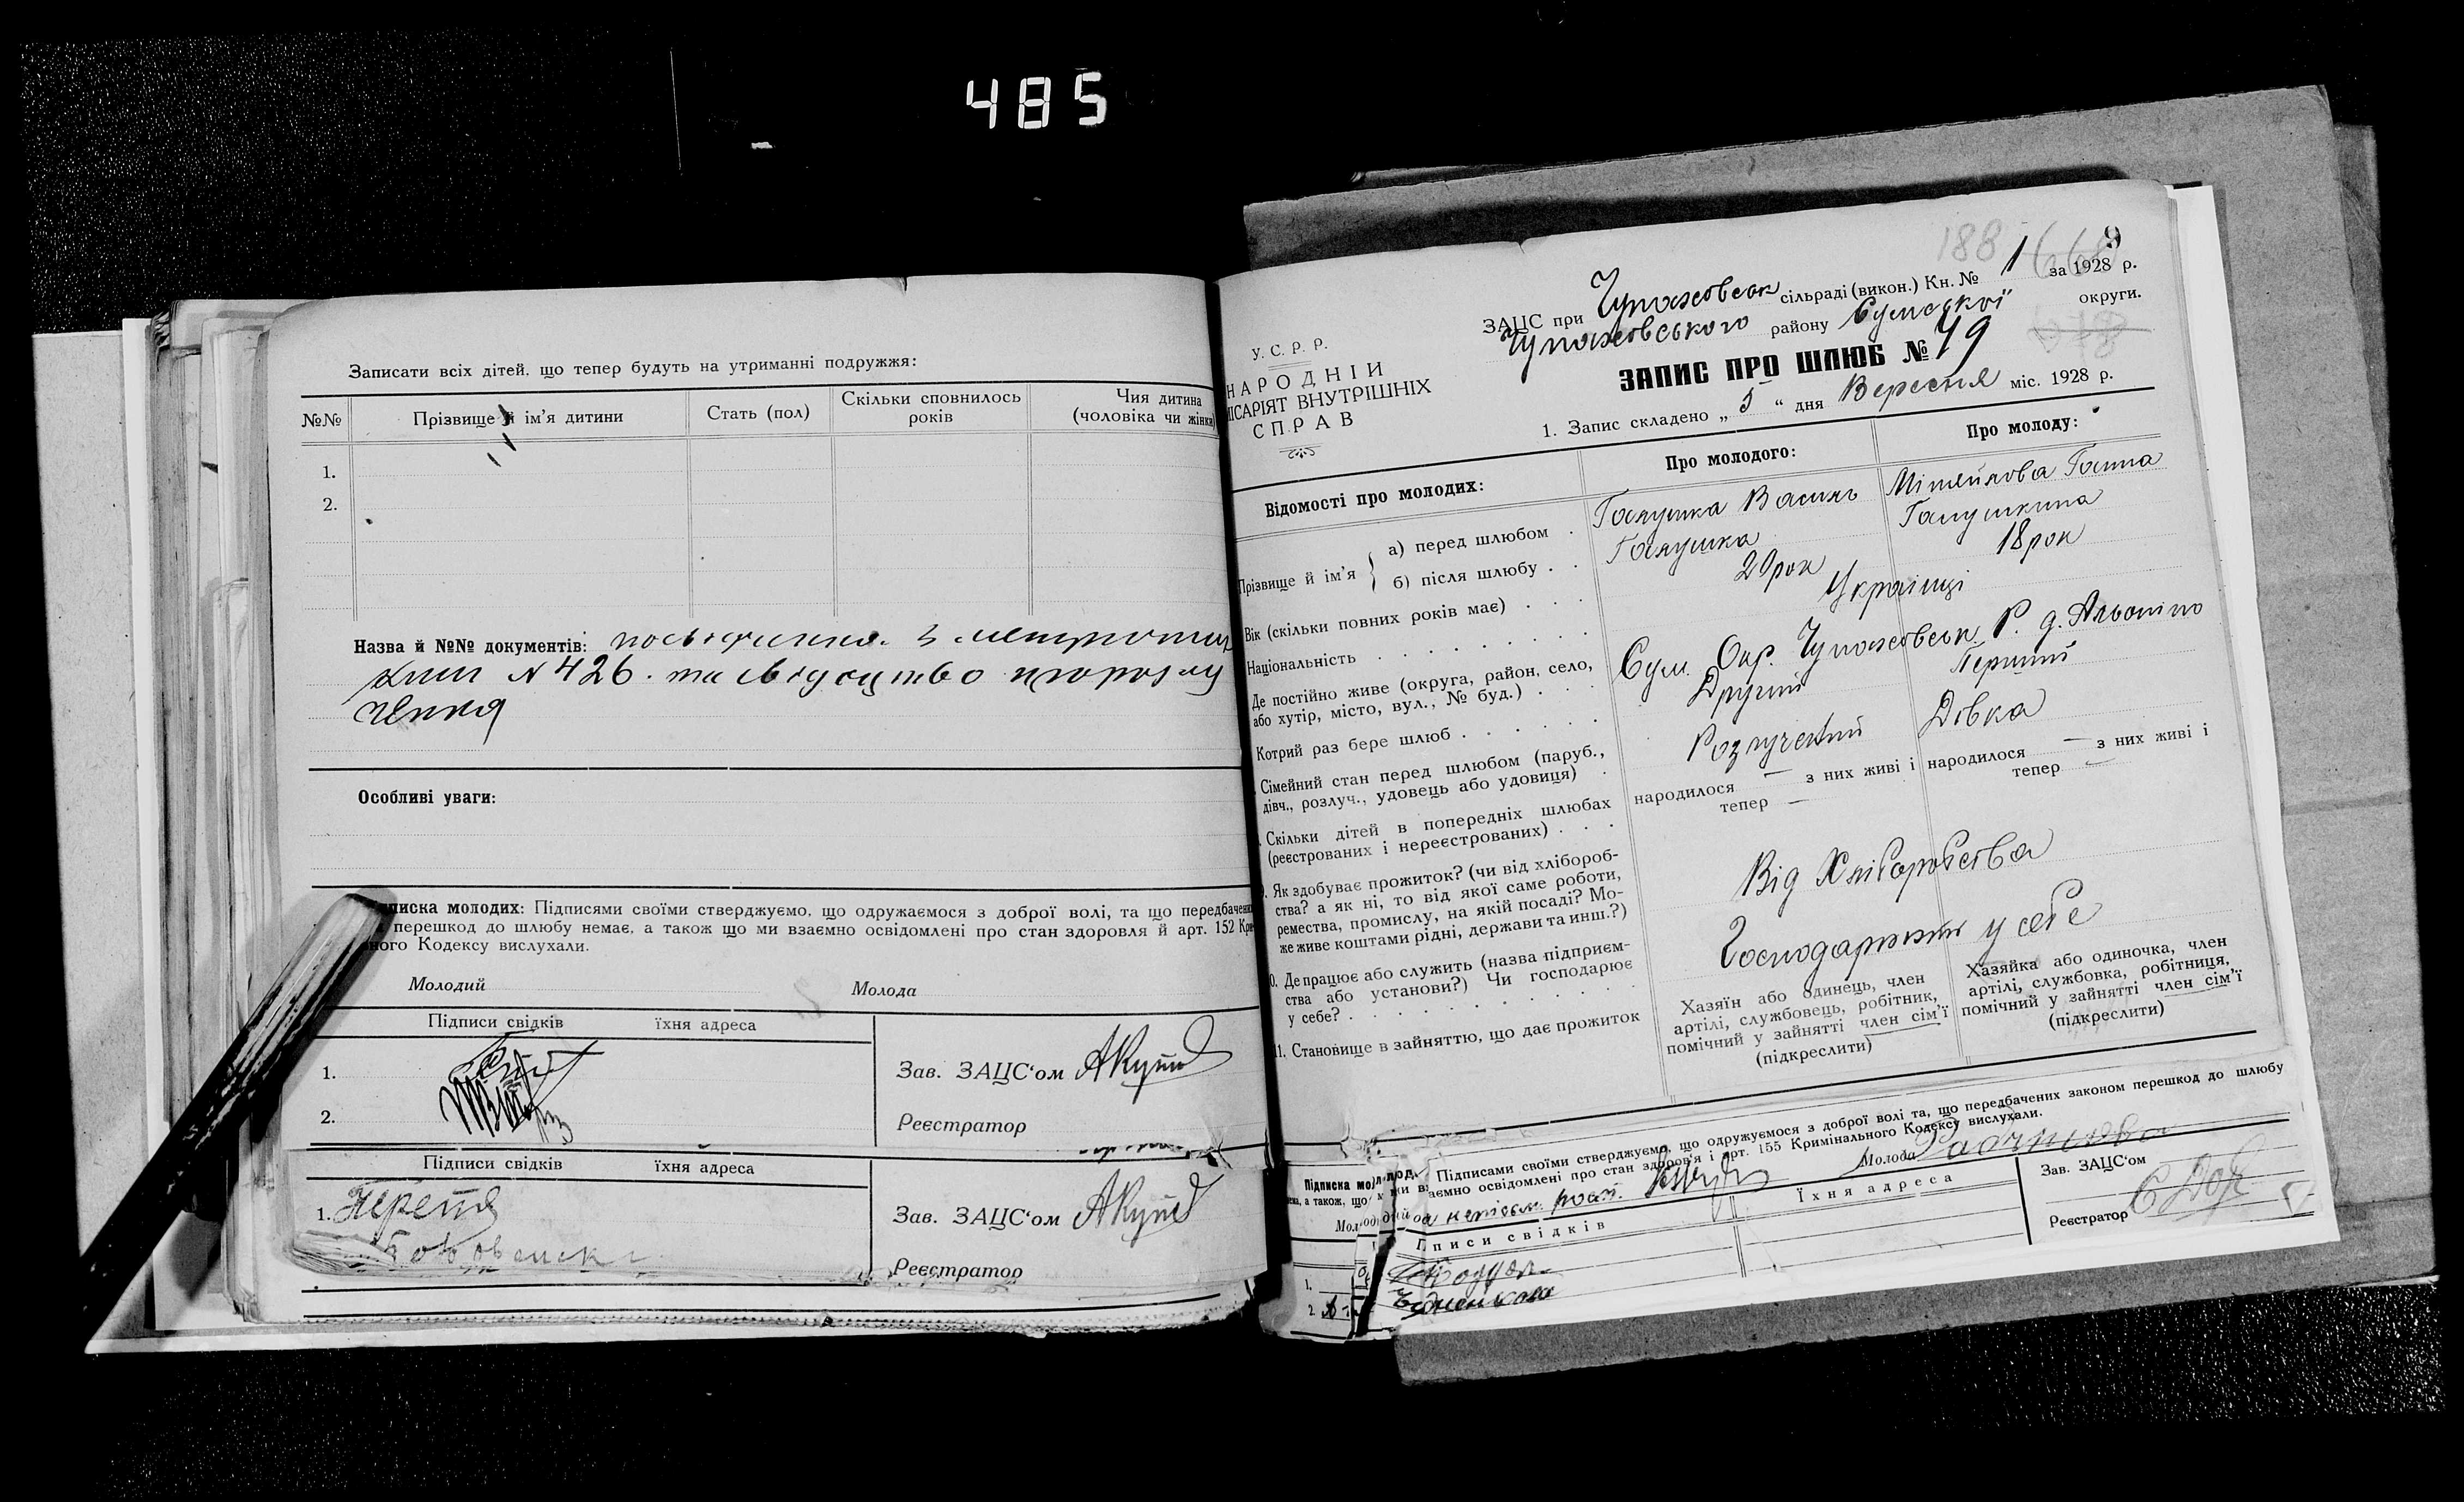 485
Записати всіх дітей, що тепер будуть на утриманні подружжя:
№№ Прізвище й ім'я дитини Стать (пол) Скільки сповнилось років Чия дитина (чоловіка чи жінки)
1.
2.
Назва й №№ документів: посьвідчення з метричних
книг №426. та свідоцтво про розлу
чення
Особливі уваги:
писка молодих: Підписями своїми стверджуємо, що одружаємося з доброї волі, та що передбачених
перешкод до шлюбу немає, а також що ми взаємно освідомлені про стан здоровля й арт. 152 Кри-
ного Кодексу вислухали.
Молодий Молода
Підписи свідків їхня адреса
1.
Зав. ЗАЦС'ом АКупі
2.
Реєстратор
Підписи свідків їхня адреса
1.
Зав. ЗАЦС'ом АКупі
Реєстратор
188
9
ЗАЦС при Чупаховськ сільраді (викон.) Кн. № 1 за 1928 р.
Чупаховського району Сумської округи.
У. С. Р. Р.
НАРОДНІЙ
ІСАРІЯТ ВНУТРІШНІХ
СПРАВ
ЗАПИС ПРО ШЛЮБ № 49
1. Запис складено „ 5 “ дня Вересня міс. 1928 р.
Відомості про молодих: Про молодого: Про молоду:
Прізвище й ім'я
а) перед шлюбом Галушка Василь Мітейлова Ганна
б) після шлюбу Галушка Галушкина
Вік (скільки повних років має) 20 рок 18 рок
Національність Українці
Де постійно живе (округа, район, село,
або хутір, місто, вул., № буд.) Сум. Окр. Чупаховськ. Р.
Котрий раз бере шлюб Другий Перший
Сімейний стан перед шлюбом (паруб.,
дівч., розлуч., удовець або удовиця) Розлучений Дівка
Скільки дітей в попередніх шлюбах
(реєстрованих і нереєстрованих)
народилося — з них живі і тепер —
народилося — з них живі і тепер —
9. Як здобуває прожиток? (чи від хлібороб-
ства? а як ні, то від якої саме роботи,
ремества, промислу, на якій посаді? Мо-
же живе коштами рідні, держави та инш.?)
Від Хліборобства
0. Де працює або служить (назва підприєм-
ства або установи?) Чи господарює
у себе?
Господарюють у себе
11. Становище в зайняттю, що дає прожиток
Хазяїн або одинець, член
артілі, службовець, робітник,
помічний у зайнятті член сім'ї
(підкреслити)
Хазяйка або одиночка, член
артілі, службовка, робітниця,
помічний у зайнятті член сім'ї
(підкреслити)
Підписами своїми стверджуємо, що одружуємося з доброї волі та, що передбачених законом перешкод до шлюбу
аємно освідомлені про стан здоров'я і арт. 155 Кримінального Кодексу вислухали.
Підписка мо
Молода
писи свідків Їхня адреса
Зав. ЗАЦС'ом
Реєстратор
1.
2.